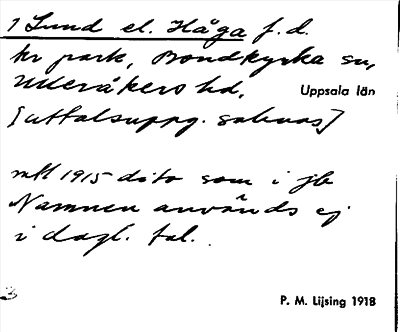 1 Lund el. Håga f. d.
kr park, Bondkyrka sn,
Ulleråkers hd, Uppsala län
[uttalsuppg. saknas]
mtl 1915 dito som i jb
Namnen används ej
i dagl. tal.
3
P. M. Lijsing 1918